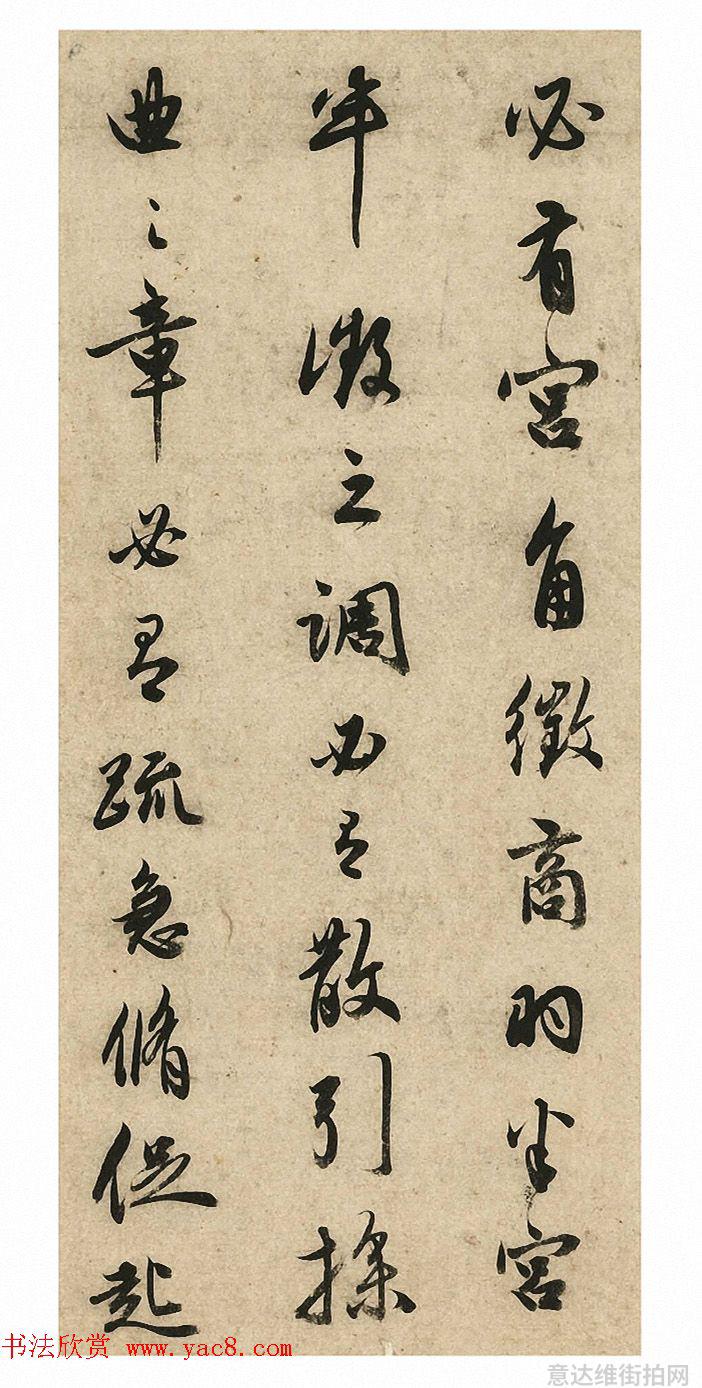 必有宫角徵商羽半宫
半徵之调必有散引操
曲之章必有疏急脩促起
书法欣赏 www.yac8.com
意达维街拍网